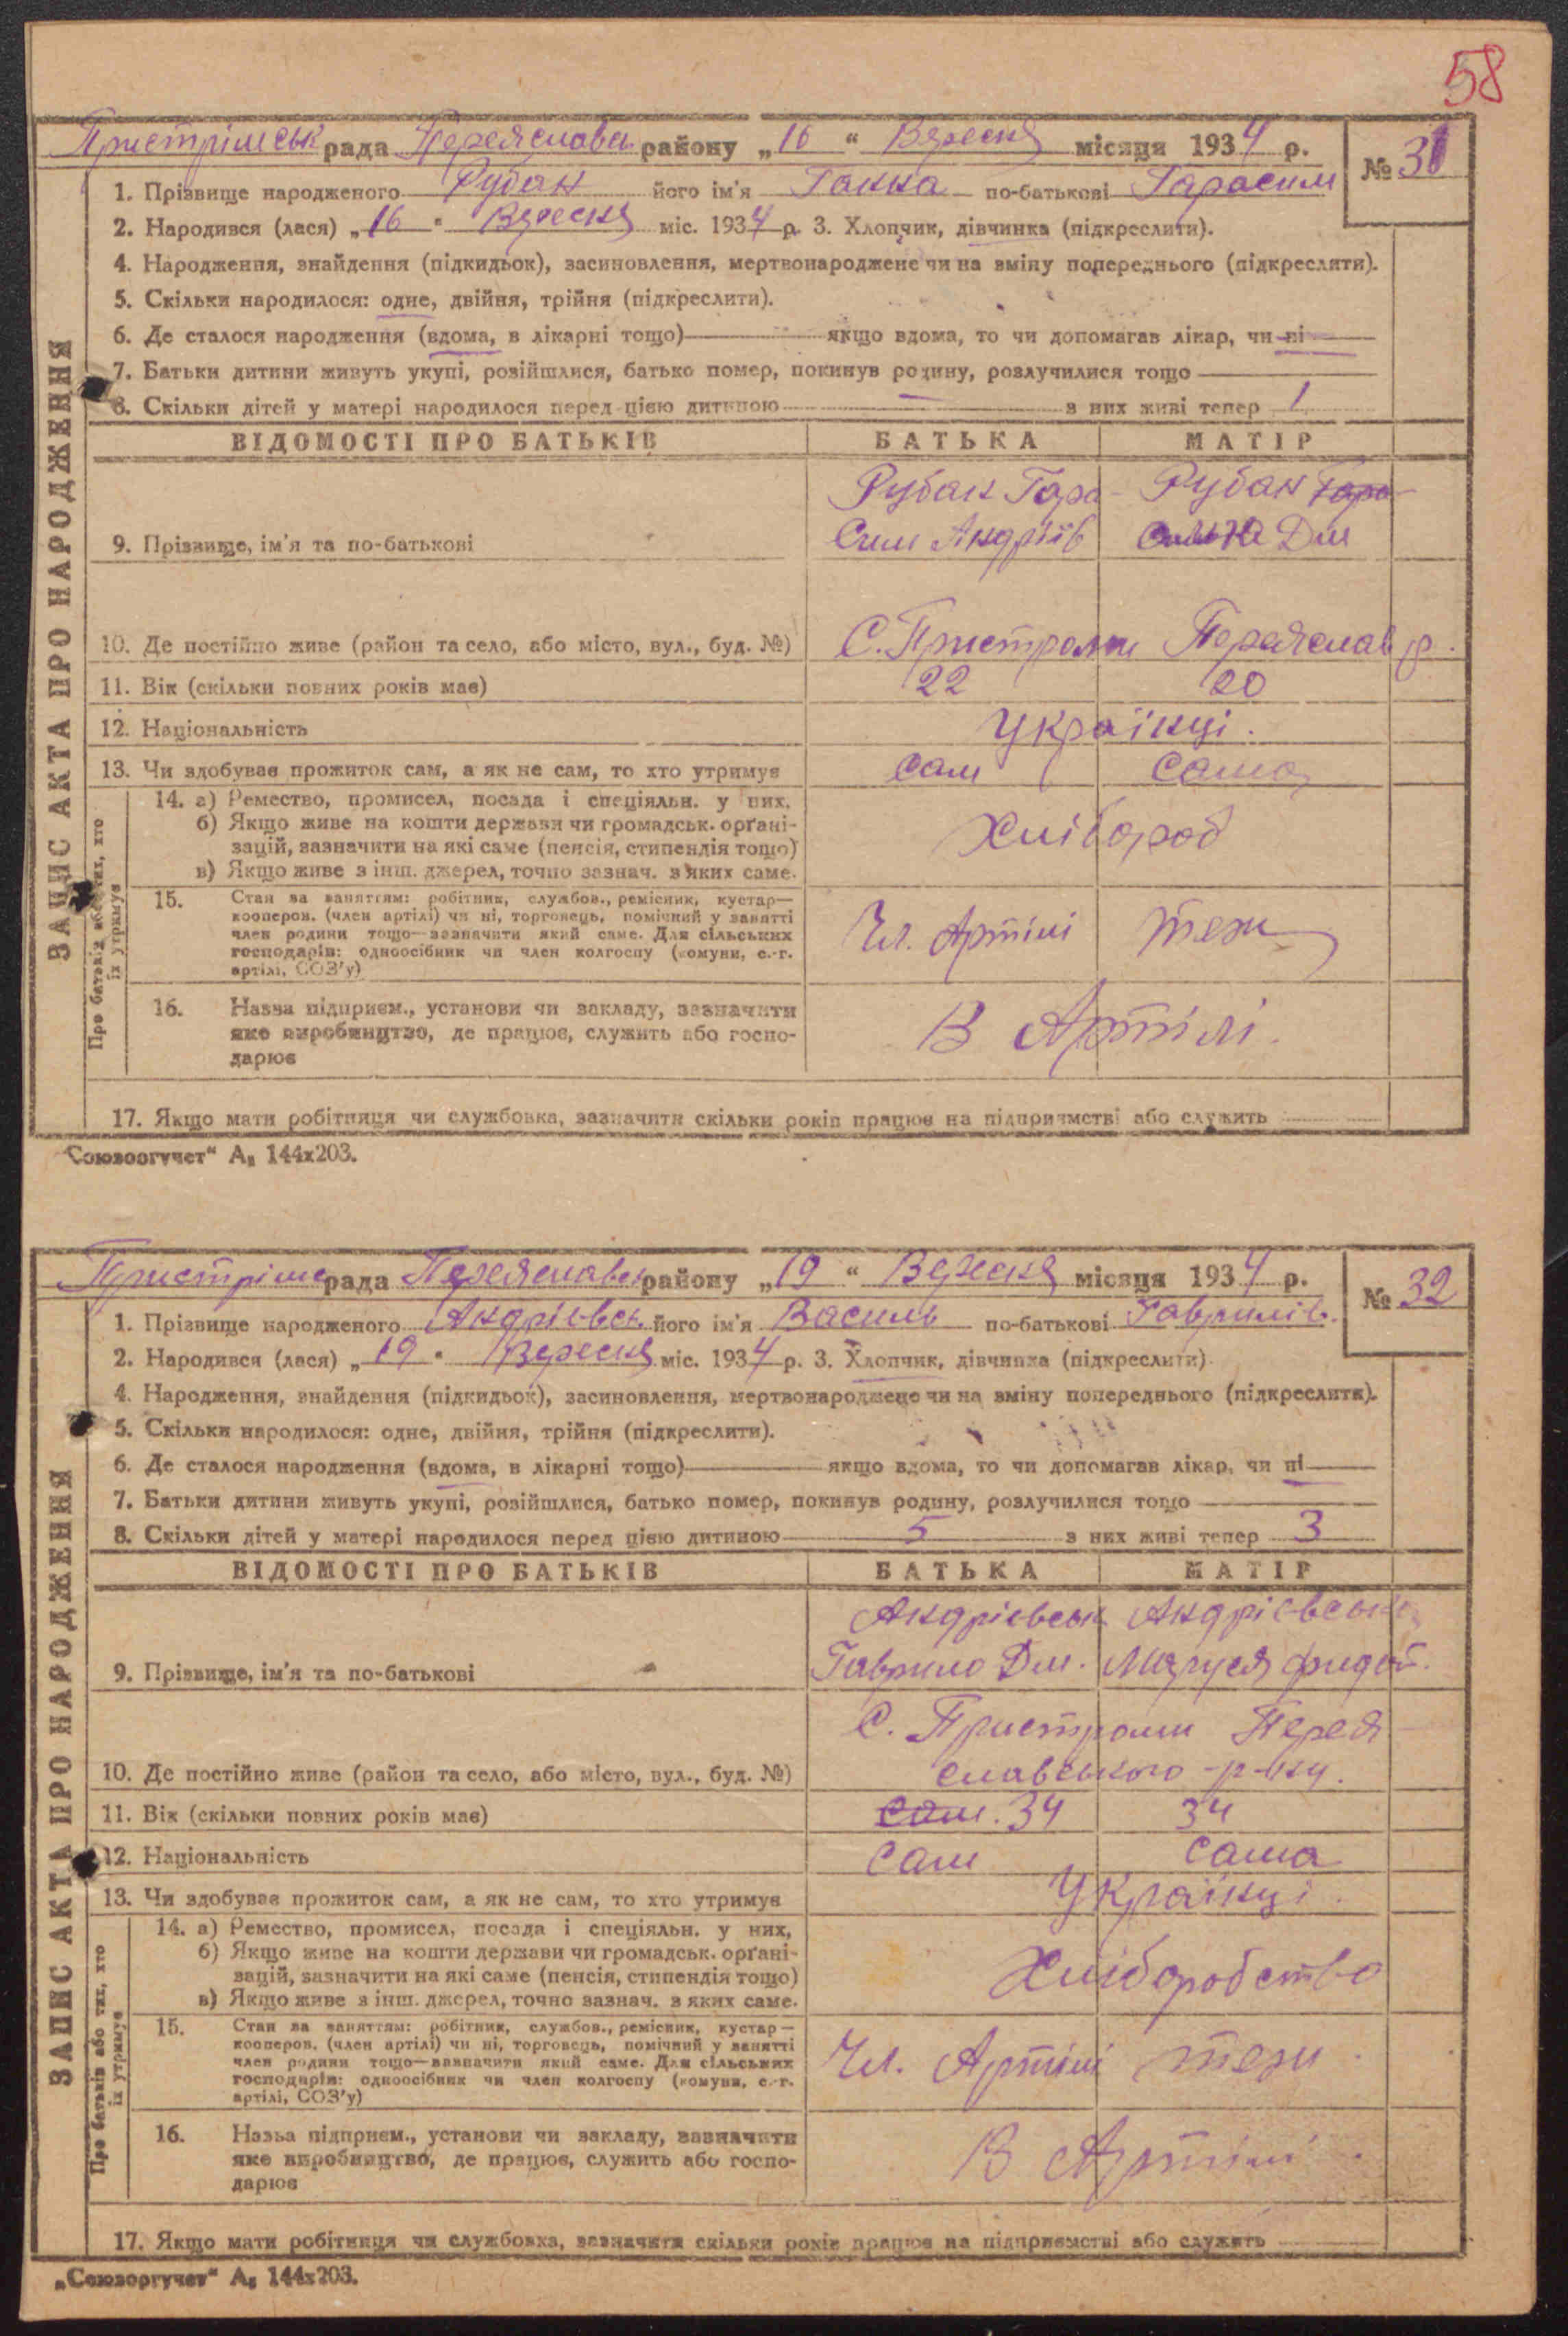 58
Пристрімськ рада Переяславськ району „16“ Вересня місяця 1934 р. № 31
1. Прізвище народженого Рубан його ім'я Ганна по-батькові Гарасим
2. Народився (лася) „16“ Вересня міс. 1934 р. 3. Хлопчик, дівчинка (підкреслити).
4. Народження, знайдення (підкидьок), засиновлення, мертвонароджене чи на зміну попереднього (підкреслити).
5. Скільки народилося: одне, двійня, трійня (підкреслити).
6. Де сталося народження (вдома, в лікарні тощо) якщо вдома, то чи допомагав лікар, чи ні
7. Батьки дитини живуть укупі, розійшлися, батько помер, покинув родину, розлучилися тощо
8. Скільки дітей у матері народилося перед цією дитиною — з них живі тепер 1
ЗАПИС АКТА ПРО НАРОДЖЕННЯ
ВІДОМОСТІ ПРО БАТЬКІВ БАТЬКА МАТІР
Рубан Гара- Рубан Гара-
9. Прізвище, ім'я та по-батькові Сим Андріїв Дм
10. Де постійно живе (район та село, або місто, вул., буд. №) С. Пристроми Переяслав р.
11. Вік (скільки повних років має) 22 20
12. Національність Українці.
13. Чи здобуває прожиток сам, а як не сам, то хто утримує Сам Сама
Про батьків або тих, хто їх утримує
14. а) Ремество, промисел, посада і спеціяльн. у них.
б) Якщо живе на кошти держави чи громадськ. орґані-
зацій, зазначити на які саме (пенсія, стипендія тощо) Хлібороб
в) Якщо живе з інш. джерел, точно зазнач. з яких саме.
15. Стан за заняттям: робітник, службов., ремісник, кустар—
кооперов. (член артілі) чи ні, торговець, помічний у занятті
член родини тощо—зазначити який саме. Для сільських Чл. Артілі теж
господарів: одноосібник чи член колгоспу (комуни, с.-г.
артілі, СОЗ'у)
16. Назва підприєм., установи чи закладу, зазначити
яке виробництво, де працює, служить або госпо- В Артілі.
дарює
17. Якщо мати робітниця чи службовка, зазначити скільки років працює на підприємстві або служить
„Союзоргучет“ А₅ 144х203.
Пристрімс рада Переяславськ району „19“ Вересня місяця 1934 р. № 32
1. Прізвище народженого Андрієвськ його ім'я Василь по-батькові Гаврилів.
2. Народився (лася) „19“ Вересня міс. 1934 р. 3. Хлопчик, дівчинка (підкреслити)
4. Народження, знайдення (підкидьок), засиновлення, мертвонароджене чи на зміну попереднього (підкреслити).
5. Скільки народилося: одне, двійня, трійня (підкреслити).
6. Де сталося народження (вдома, в лікарні тощо) якщо вдома, то чи допомагав лікар, чи ні
7. Батьки дитини живуть укупі, розійшлися, батько помер, покинув родину, розлучилися тощо
8. Скільки дітей у матері народилося перед цією дитиною 5 з них живі тепер 3
ЗАПИС АКТА ПРО НАРОДЖЕННЯ
ВІДОМОСТІ ПРО БАТЬКІВ БАТЬКА МАТІР
Андрієвськ Андрієвська
9. Прізвище, ім'я та по-батькові Гаврило Дм. Маруся Федот.
С. Пристроми Перея-
10. Де постійно живе (район та село, або місто, вул., буд. №) славського р-ну.
11. Вік (скільки повних років має) Сам. 34 34
12. Національність Сам Сама
13. Чи здобуває прожиток сам, а як не сам, то хто утримує Українці.
Про батьків або тих, хто їх утримує
14. а) Ремество, промисел, посада і спеціяльн. у них,
б) Якщо живе на кошти держави чи громадськ. орґані-
зацій, зазначити на які саме (пенсія, стипендія тощо) Хліборобство
в) Якщо живе з інш. джерел, точно зазнач. з яких саме.
15. Стан за заняттям: робітник, службов., ремісник, кустар—
кооперов. (член артілі) чи ні, торговець, помічний у занятті
член родини тощо—зазначити який саме. Для сільських Чл. Артілі теж
господарів: одноосібник чи член колгоспу (комуни, с.-г.
артілі, СОЗ'у)
16. Назва підприєм., установи чи закладу, зазначити
яке виробництво, де працює, служить або госпо- В Артілі.
дарює
17. Якщо мати робітниця чи службовка, зазначити скільки років працює на підприємстві або служить
„Союзоргучет“ А₅ 144х203.